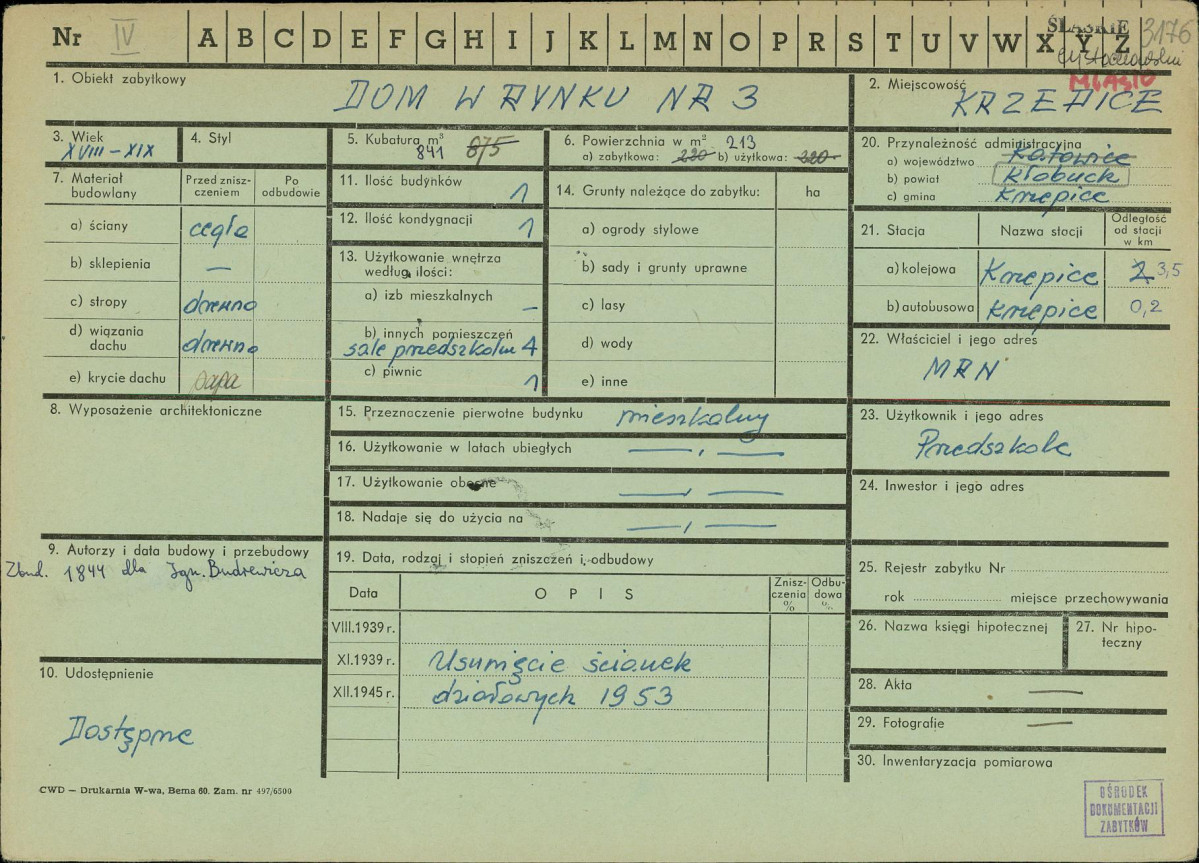 Nr IV A B C D E F G H I J K L M N O P R S T U V W X Y Z
ŚLĄSKIE 3176
MIASTO
1. Obiekt zabytkowy
DOM W RYNKU NR 3
2. Miejscowość
KRZEPICE
3. Wiek
XVIII – XIX
4. Styl
5. Kubatura m³
841 875
6. Powierzchnia w m² 213
a) zabytkowa: 220 b) użytkowa: 220
7. Materiał budowlany
Przed zniszczeniem
Po odbudowie
a) ściany cegła
b) sklepienia —
c) stropy drewno
d) wiązania dachu drewno
e) krycie dachu papa
8. Wyposażenie architektoniczne
9. Autorzy i data budowy i przebudowy
Zbud. 1844 dla Ign. Budrewicza
10. Udostępnienie
Dostępne
11. Ilość budynków 1
12. Ilość kondygnacji 1
13. Użytkowanie wnętrza według ilości:
a) izb mieszkalnych –
b) innych pomieszczeń
sale przedszkolne 4
c) piwnic 1
14. Grunty należące do zabytku: ha
a) ogrody stylowe
b) sady i grunty uprawne
c) lasy
d) wody
e) inne
15. Przeznaczenie pierwotne budynku mieszkalny
16. Użytkowanie w latach ubiegłych — , —
17. Użytkowanie obecne — , —
18. Nadaje się do użycia na — , —
19. Data, rodzaj i stopień zniszczeń i odbudowy
Data
OPIS
Zniszczenia %
Odbudowa %
VIII.1939 r.
XI.1939 r. Usunięcie ścianek
XII.1945 r. działowych 1953
20. Przynależność administracyjna
a) województwo Katowice
b) powiat Kłobuck
c) gmina Krzepice
21. Stacja
Nazwa stacji
Odległość od stacji w km
a) kolejowa Krzepice 2 3,5
b) autobusowa Krzepice 0,2
22. Właściciel i jego adres
MRN
23. Użytkownik i jego adres
Przedszkole
24. Inwestor i jego adres
25. Rejestr zabytku Nr
rok miejsce przechowywania
26. Nazwa księgi hipotecznej
27. Nr hipoteczny
28. Akta —
29. Fotografie —
30. Inwentaryzacja pomiarowa
CWD – Drukarnia W-wa, Bema 60. Zam. nr 497/6500
OŚRODEK
DOKUMENTACJI
ZABYTKÓW